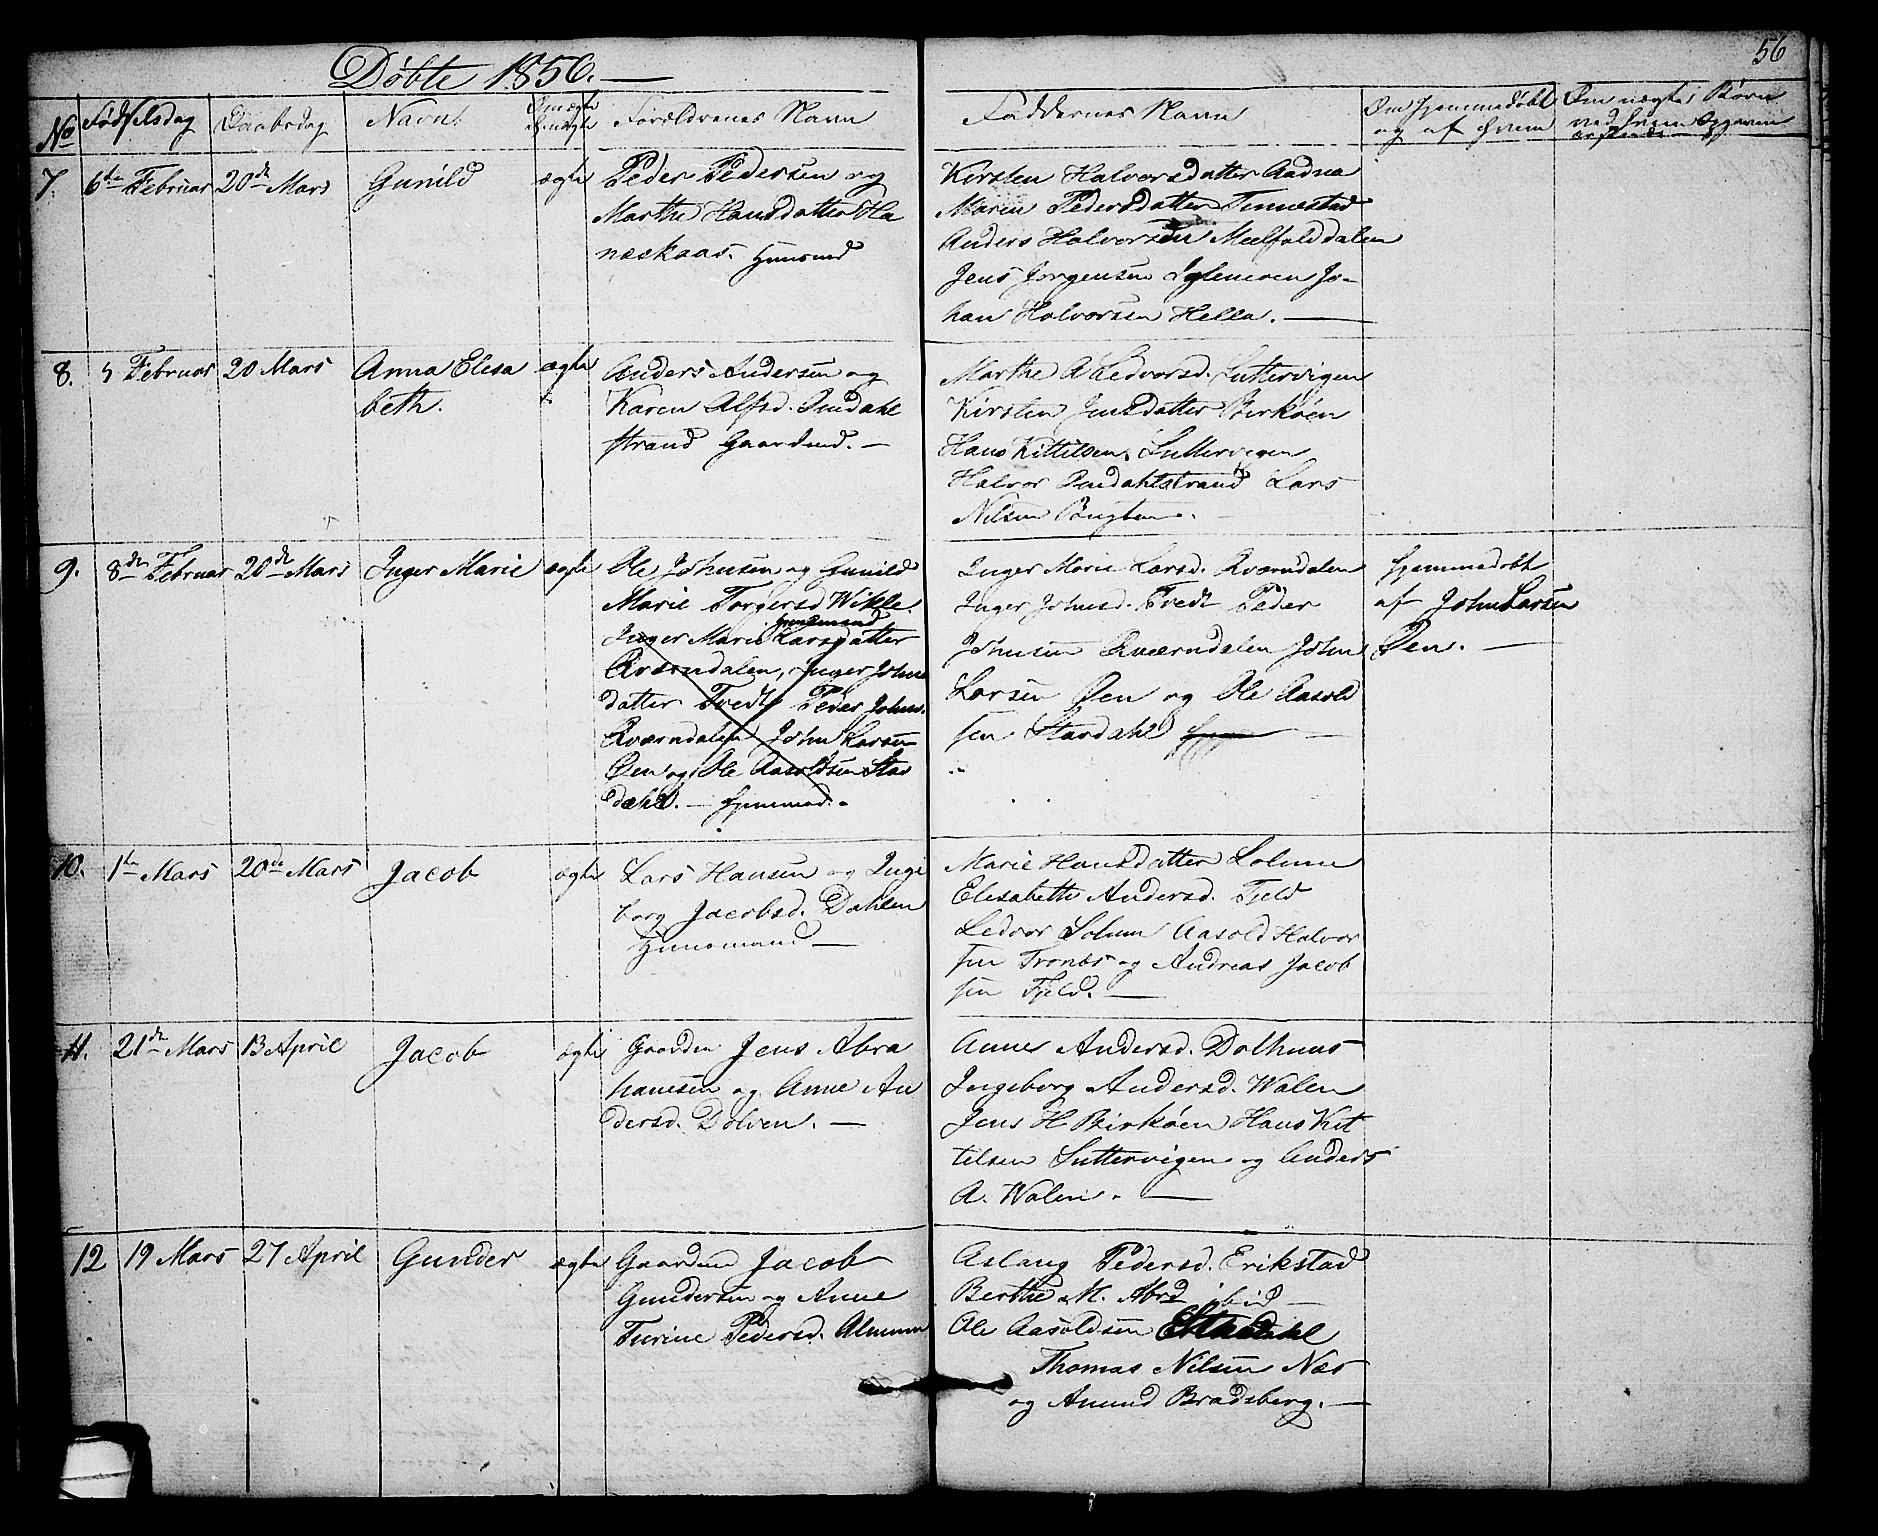 Døbte 1850.
56
No
Fødselsdag
Daabsdag
Navn.
Om ægte
Uægte
Forældrenes Navn
Faddernes Navn
Om hjemmedøbt
og af hvem
Om uægte Børn
ved hvem Opgaven
7.
6te Februar
20de Mars
Gunild
ægte
Peder Pedersen og
Marthe Hansdatter Ha
neskaas. Huusmd
Kirsten Halvorsdatter Aadna
Maren Pedersdatter Finnestad
Anders Halvorsen Melfolddalen
Jens Jørgensen Yglemoen Jo-
han Halvorsen Hella.
8.
5 Februar
20 Mars
Anna Elisa
beth.
ægte
Anders Andersen og
Karen Alfsd. Omdahl
strand Gaardmd.
Marthe A Ledvorsd. Luttervigen
Kirsten Jensdatter Birkøen
Hans Kittilsen, Luttervigen
Halvor Omdahlstrand Lars
Nilsen Bugten.
9.
8de Februar
20de Mars
Inger Marie
ægte
Ole Johnsen og Gunild
Marie Torgersd Wikle.
Huusmand
Inger Marie Larsdatter
Qværndalen, Inger Johns
datter Tvedt Peder Johns.
Qværndalen John Larsen
Øen og Ole Aasoldsen Star
dahl. — Hjemmed.
Inger Marie Larsd. Qværndalen
Inger Johnsd. Tvedt Peder
Johnsen Qværndalen John
Larsen Øen og Ole Aasold
sen Stardahl
hjemmedøbt
af John Larsen
Øen.
10.
1te Mars
20de Mars
Jacob
ægte
Lars Hansen og Inge
borg Jacobsd. Dahlen
Huusmand
Marie Hansdatter Solum
Elisabeth Andersd. Fjeld
Ledvor Solum Aasold Halvor
sen Tronæs og Andreas Jacob
sen Fjeld.
11.
21de Mars
13 April
Jacob
ægte
Gaardm Jens Abra
hamsen og Anne An
dersd. Dolven.
Anne Andersd. Dolhuus
Ingeborg Andersd. Walen
Jens H Birkøen Hans Kit
telsen Luttervigen og Anders
A. Walen.
12
19 Mars
27 April
Gunder
ægte
Gaardm Jacob
Gundersen og Anne
Turine Pedersd. Almum
Aslaug Pedersd. Erikstad
Berthe M. Abrd ibid
Ole Aasoldsen Stardahl
Thomas Nilsen Næs
og Amund Bradsberg.